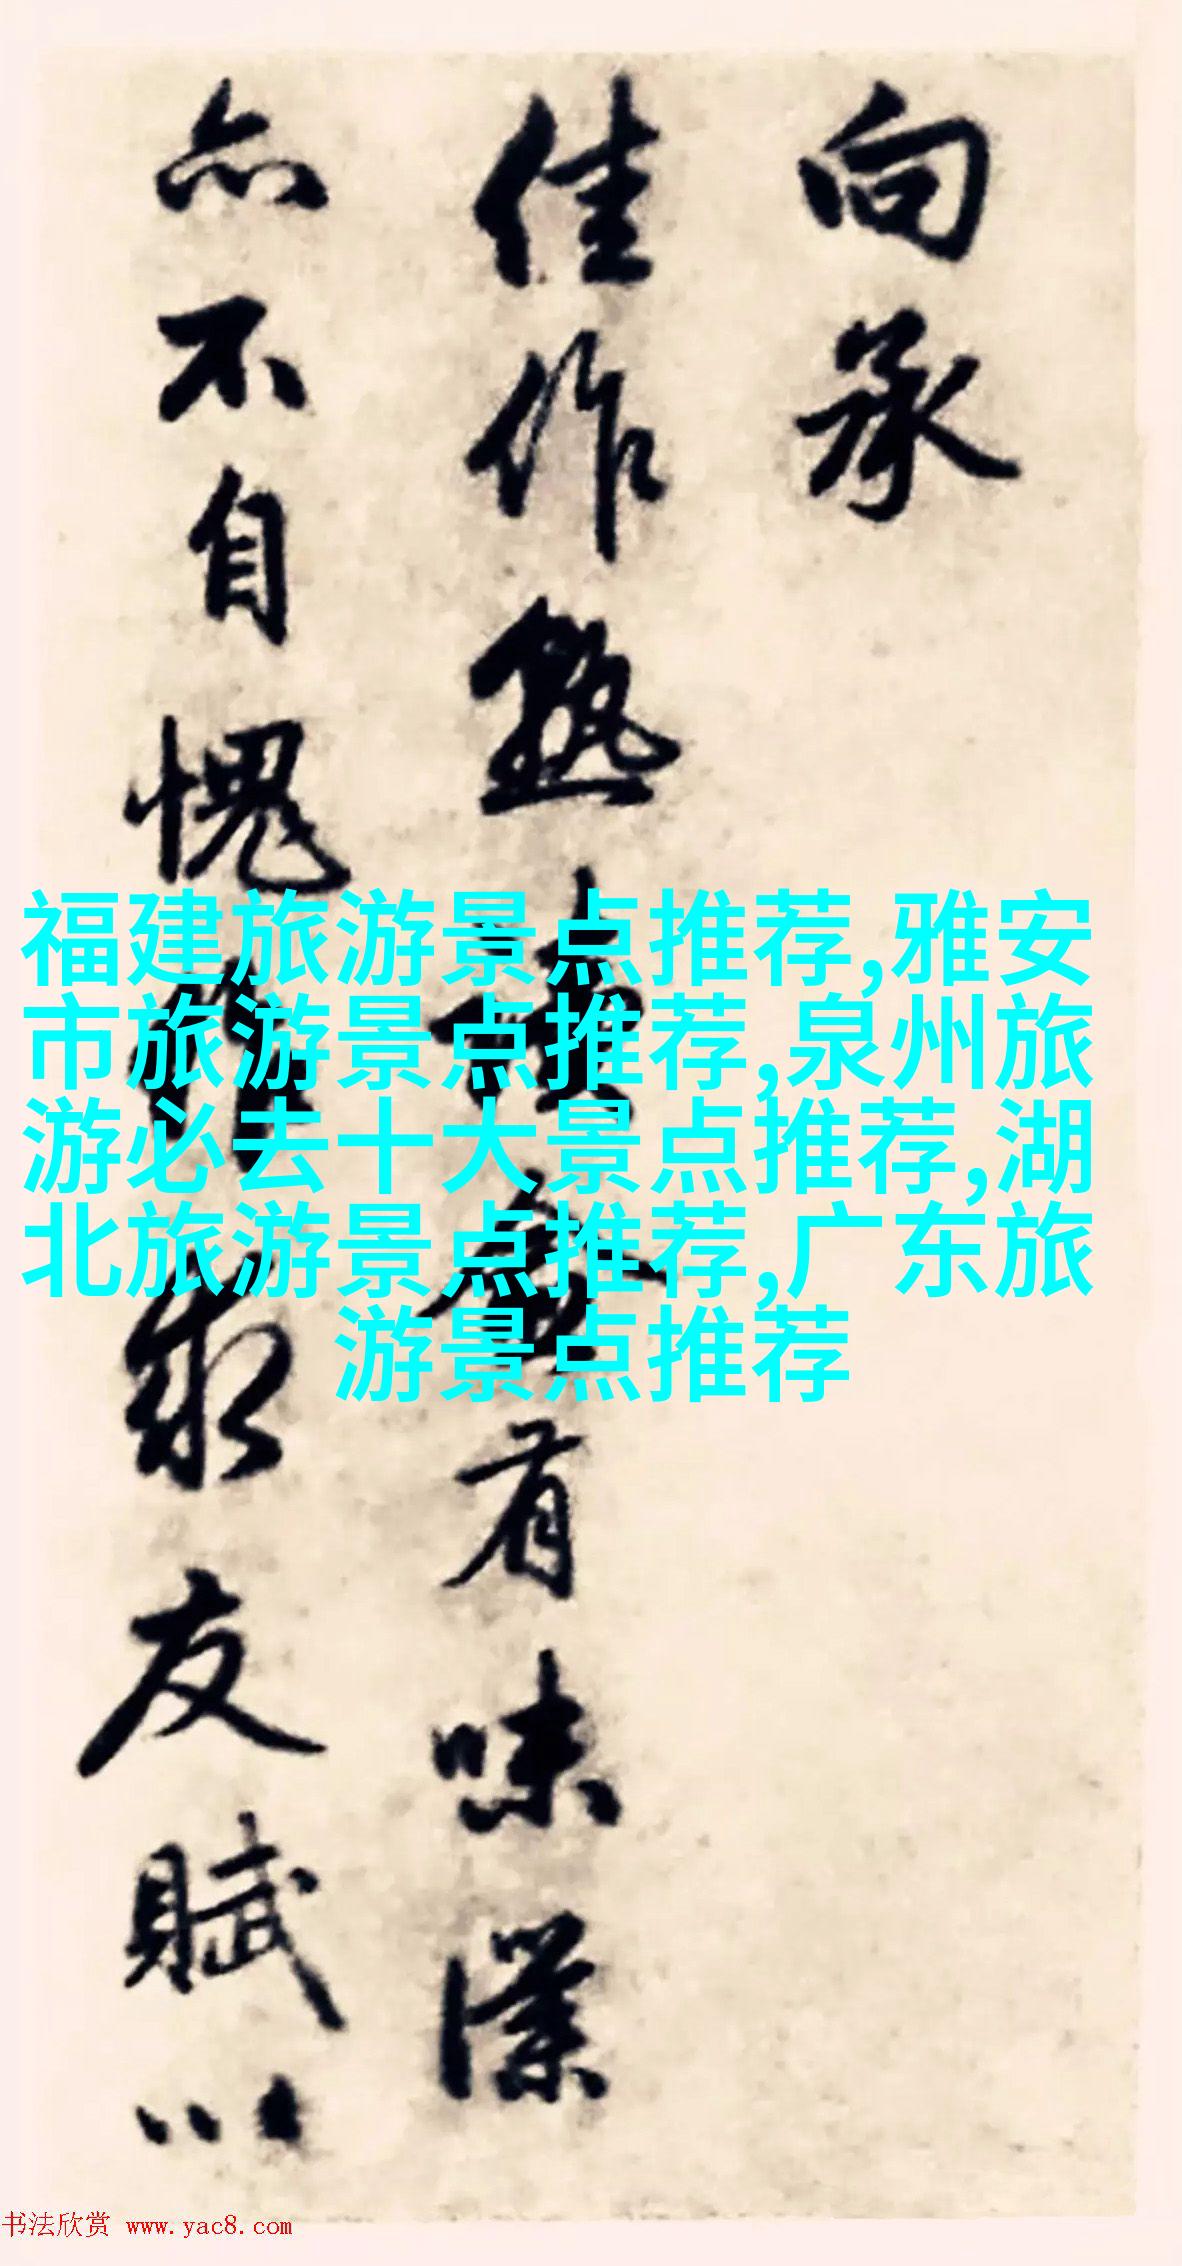 向承
佳作熟读盖有味仆
亦不自愧
求友赋以
福建旅游景点推荐,雅安
市旅游景点推荐,泉州旅
游必去十大景点推荐,湖
北旅游景点推荐,广东旅
游景点推荐
书法欣赏 www.yac8.com